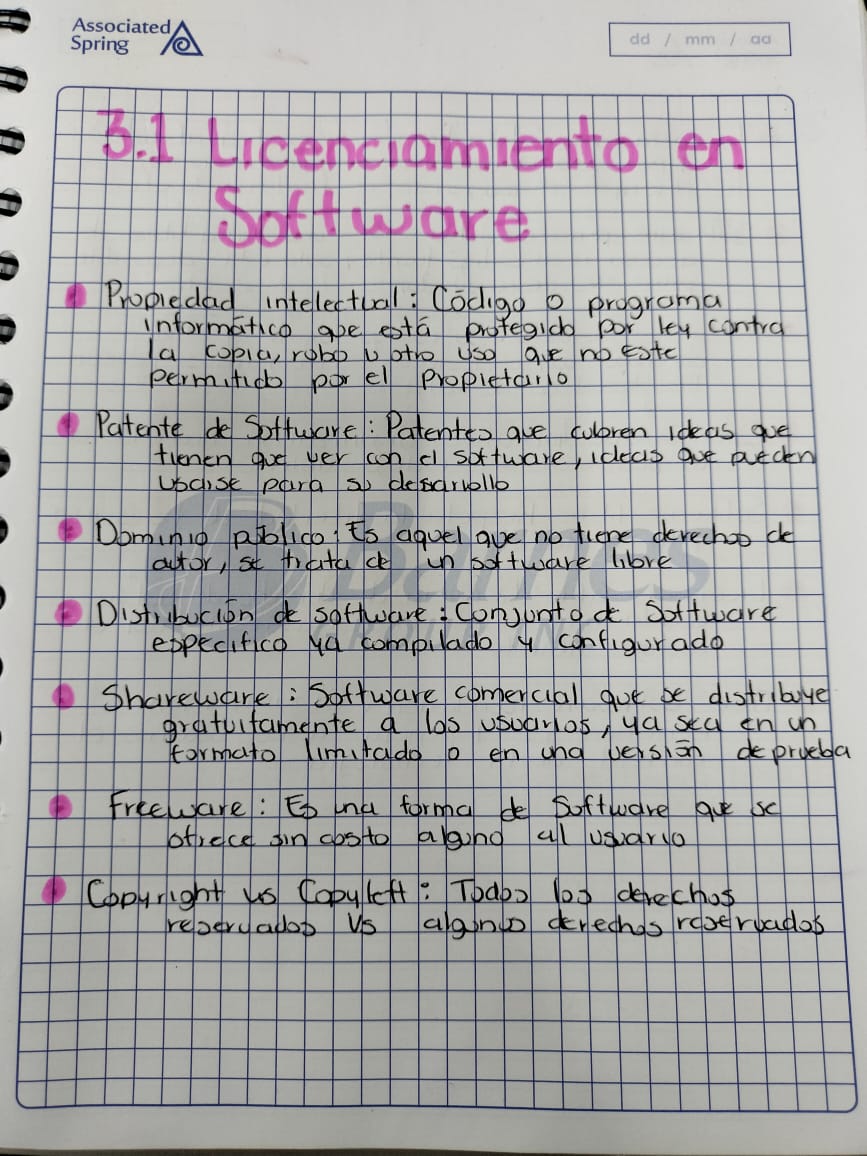 Associated
Spring
dd / mm / aa
3.1 Licenciamiento en
Software
Propiedad intelectual: Código o programa
informático que está protegido por ley contra
la copia, robo u otro uso que no este
permitido por el propietario
Patente de Software: Patentes que cubren ideas que
tienen que ver con el software, ideas que pueden
usarse para su desarrollo
Dominio público: Es aquel que no tiene derechos de
autor, se trata de un software libre
Distribución de software: Conjunto de Software
especifico ya compilado y configurado
Shareware: Software comercial que se distribuye
gratuitamente a los usuarios, ya sea en un
formato limitado o en una versión de prueba
Freeware: Es una forma de Software que se
ofrece sin costo alguno al usuario
Copyright vs Copyleft: Todos los derechos
reservados Vs algunos derechos reservados
Barnes